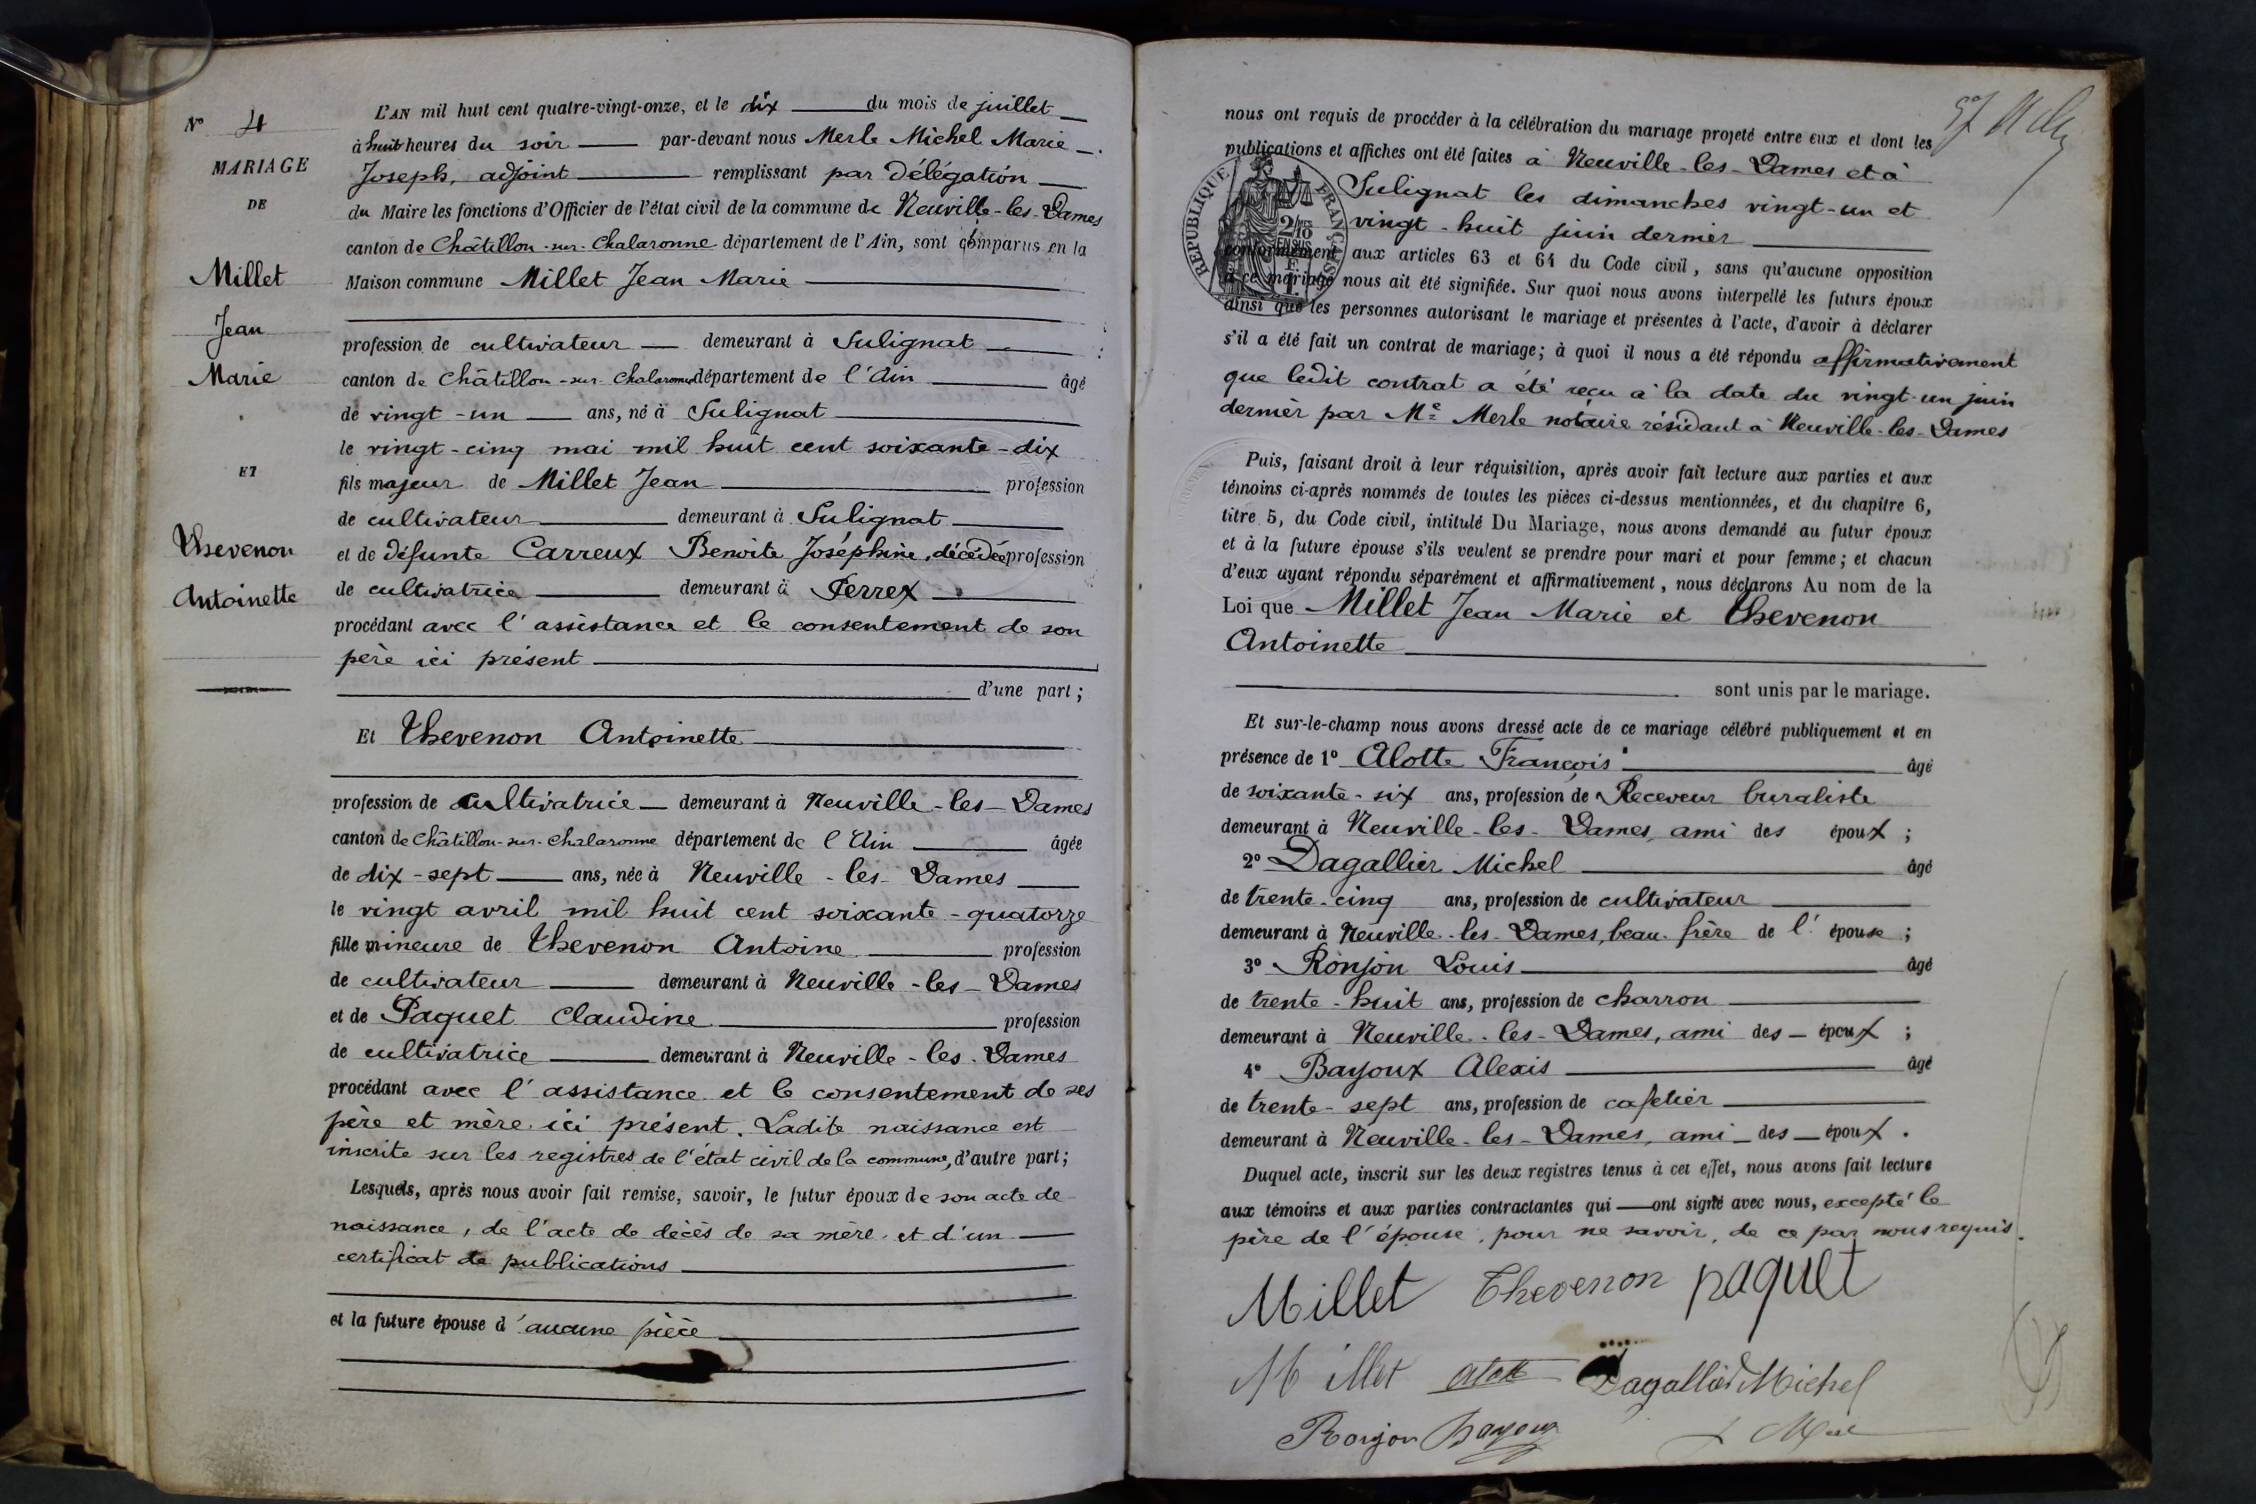 N° 4
MARIAGE
DE
Millet
Jean
Marie
ET
Thevenon
Antoinette
L'AN mil huit cent quatre-vingt-onze, et le dix du mois de juillet
à huit heures du soir par-devant nous Merle Michel Marie
Joseph, adjoint remplissant par délégation
du Maire les fonctions d'Officier de l'état civil de la commune de Neuville-les-Dames
canton de Châtillon-sur-Chalaronne département de l'Ain, sont comparus en la
Maison commune Millet Jean Marie
profession de cultivateur demeurant à Sulignat
canton de Châtillon-sur-Chalaronne département de l'Ain âgé
de vingt-un ans, né à Sulignat
le vingt-cinq mai mil huit cent soixante-dix
fils majeur de Millet Jean profession
de cultivateur demeurant à Sulignat
et de défunte Carreux Benoite Joséphine, décédée profession
de cultivatrice demeurant à Perrex
procédant avec l'assistance et le consentement de son
père ici présent
d'une part;
Et Thevenon Antoinette
profession de cultivatrice demeurant à Neuville-les-Dames
canton de Châtillon-sur-Chalaronne département de l'Ain âgée
de dix-sept ans, née à Neuville-les-Dames
le vingt avril mil huit cent soixante-quatorze
fille mineure de Thevenon Antoine profession
de cultivateur demeurant à Neuville-les-Dames
et de Paquet Claudine profession
de cultivatrice demeurant à Neuville-les-Dames
procédant avec l'assistance et le consentement de ses
père et mère ici présent. Ladite naissance est
inscrite sur les registres de l'état civil de la commune, d'autre part;
Lesquels, après nous avoir fait remise, savoir, le futur époux de son acte de
naissance, de l'acte de décès de sa mère et d'un
certificat de publications
et la future épouse d'aucune pièce
nous ont requis de procéder à la célébration du mariage projeté entre eux et dont les
publications et affiches ont été faites à Neuville-les-Dames et à
Sulignat les dimanches vingt-un et
vingt-huit juin dernier
conformément aux articles 63 et 64 du Code civil, sans qu'aucune opposition
à ce mariage nous ait été signifiée. Sur quoi nous avons interpellé les futurs époux
ainsi que les personnes autorisant le mariage et présentes à l'acte, d'avoir à déclarer
s'il a été fait un contrat de mariage; à quoi il nous a été répondu affirmativement
que ledit contrat a été reçu à la date du vingt-un juin
dernier par Me Merle notaire résidant à Neuville-les-Dames
RÉPUBLIQUE FRANÇAISE
2/10 EN SUS
Puis, faisant droit à leur réquisition, après avoir fait lecture aux parties et aux
témoins ci-après nommés de toutes les pièces ci-dessus mentionnées, et du chapitre 6,
titre 5, du Code civil, intitulé Du Mariage, nous avons demandé au futur époux
et à la future épouse s'ils veulent se prendre pour mari et pour femme; et chacun
d'eux ayant répondu séparément et affirmativement, nous déclarons Au nom de la
Loi que Millet Jean Marie et Thevenon
Antoinette
sont unis par le mariage.
Et sur-le-champ nous avons dressé acte de ce mariage célébré publiquement et en
présence de 1° Alotte François âgé
de soixante-six ans, profession de Receveur buraliste
demeurant à Neuville-les-Dames, ami des époux;
2° Dagallier Michel âgé
de trente-cinq ans, profession de cultivateur
demeurant à Neuville-les-Dames, beau-frère de l'épouse;
3° Ronjon Louis âgé
de trente-huit ans, profession de charron
demeurant à Neuville-les-Dames, ami des époux;
4° Bayoux Alexis âgé
de trente-sept ans, profession de cafetier
demeurant à Neuville-les-Dames, ami des époux.
Duquel acte, inscrit sur les deux registres tenus à cet effet, nous avons fait lecture
aux témoins et aux parties contractantes qui ont signé avec nous, excepté le
père de l'épouse, pour ne savoir, de ce par nous requis.
Millet Thevenon paquet
Millet Alotte Dagallier Michel
Ronjon Bayoux